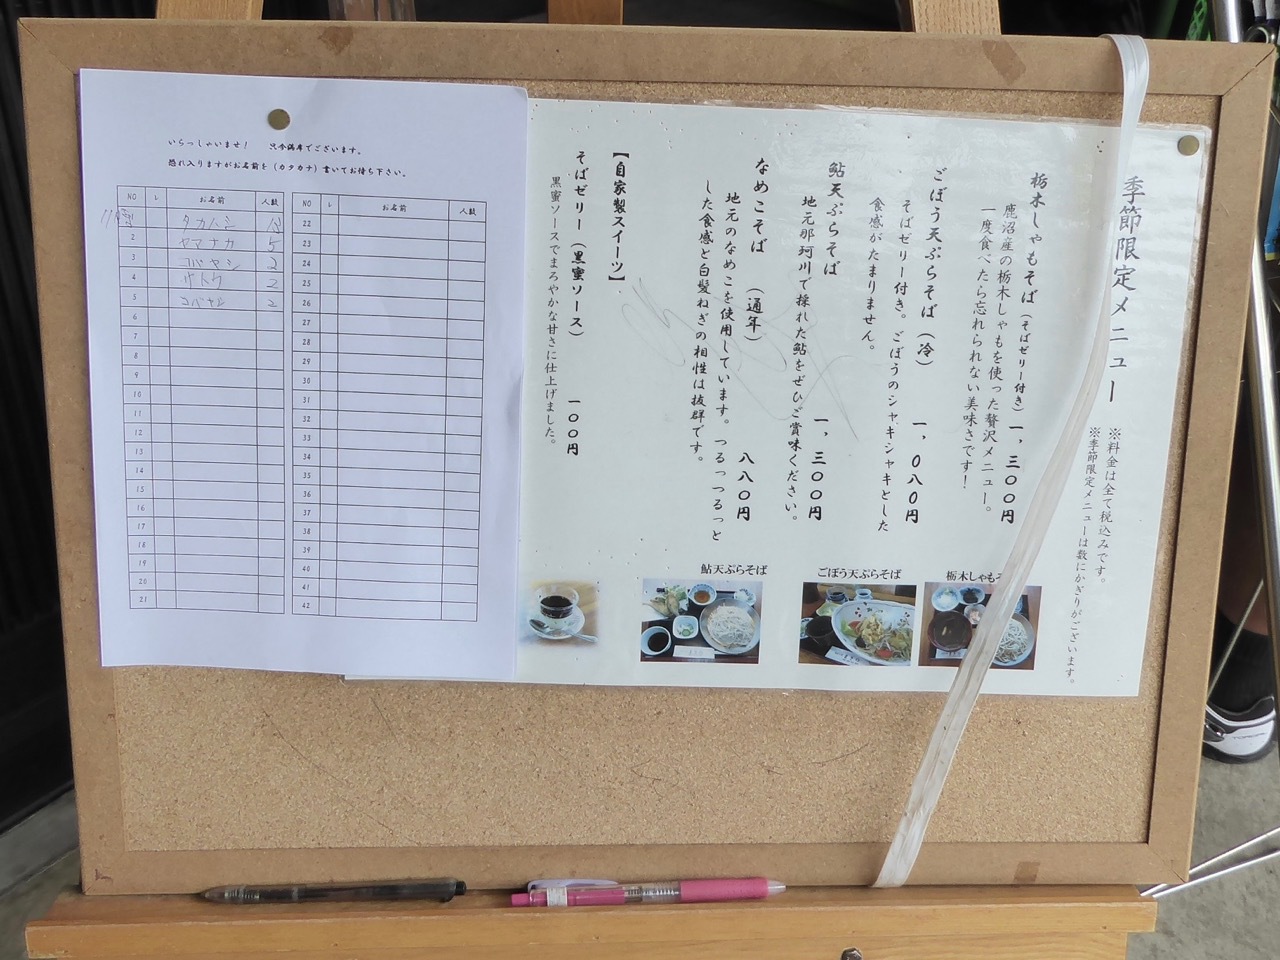 いらっしゃいませ！　只今満席でございます。
恐れ入りますがお名前を（カタカナ）書いてお待ち下さい。
NO レ お名前 人数
1 タカハシ
2 ヤマナカ 5
3 コバヤシ 2
4 サトウ 2
5 2
6
7
8
9
10
11
12
13
14
15
16
17
18
19
20
21
NO レ お名前 人数
22
23
24
25
26
27
28
29
30
31
32
33
34
35
36
37
38
39
40
41
42
季節限定メニュー
※料金は全て税込みです。
※季節限定メニューは数にかぎりがございます。
栃木しゃもそば（そばゼリー付き）一,三〇〇円
鹿沼産の栃木しゃもを使った贅沢メニュー。
一度食べたら忘れられない美味さです！
ごぼう天ぷらそば（冷）　一,〇八〇円
そばゼリー付き。ごぼうのシャキシャキとした
食感がたまりません。
鮎天ぷらそば　一,三〇〇円
地元那珂川で採れた鮎をぜひご賞味ください。
なめこそば　（通年）　八八〇円
地元のなめこを使用しています。つるっつるっと
した食感と白髪ねぎの相性は抜群です。
【自家製スイーツ】
そばゼリー（黒蜜ソース）　一〇〇円
黒蜜ソースでまろやかな甘さに仕上げました。
鮎天ぷらそば
ごぼう天ぷらそば
栃木しゃもそ